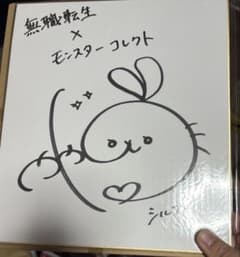 無職転生
×
モンスターコレクト